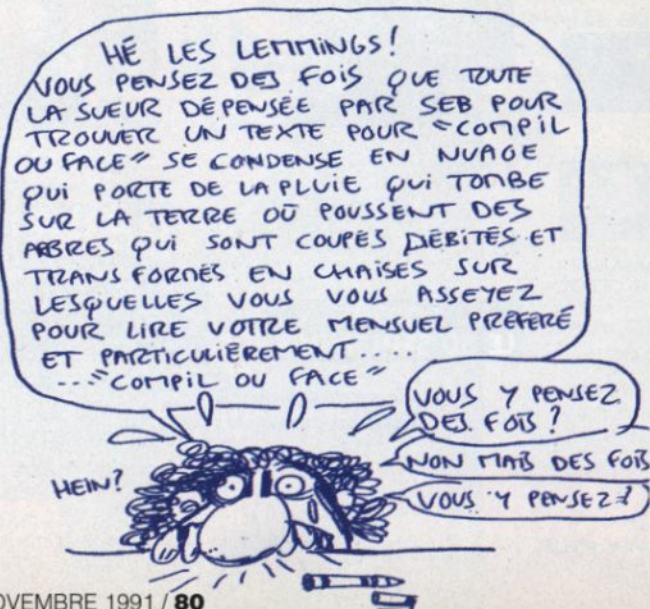 HÉ LES LEMMINGS!
VOUS PENSEZ DES FOIS QUE TOUTE
LA SUEUR DÉPENSÉE PAR SEB POUR
TROUVER UN TEXTE POUR "COMPIL
OU FACE" SE CONDENSE EN NUAGE
QUI PORTE DE LA PLUIE QUI TOMBE
SUR LA TERRE OÙ POUSSENT DES
ARBRES QUI SONT COUPÉS DÉBITÉS ET
TRANSFORMÉS EN CHAISES SUR
LESQUELLES VOUS VOUS ASSEYEZ
POUR LIRE VOTRE MENSUEL PRÉFÉRÉ
ET PARTICULIÈREMENT.....
..."COMPIL OU FACE"
VOUS Y PENSEZ
DES FOIS?
NON MAIS DES FOIS
VOUS Y PENSEZ?
HEIN?
NOVEMBRE 1991 / 80